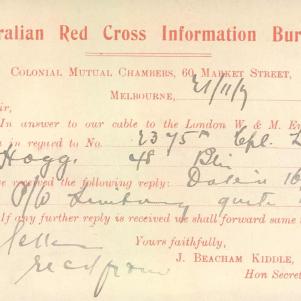 ralian Red Cross Information Bur
COLONIAL MUTUAL CHAMBERS, 60 MARKET STREET,
MELBOURNE, 21/11/17
ir,
In answer to our cable to the London W & M. E
in regard to No. 2375A Cpl. L
Hogg. 48 Bn
e received the following reply: Date in 16
P/W Limburg quite
If any further reply is received we shall forward same
Yours faithfully,
Letter
J. BEACHAM KIDDLE,
recd from
Hon Secret